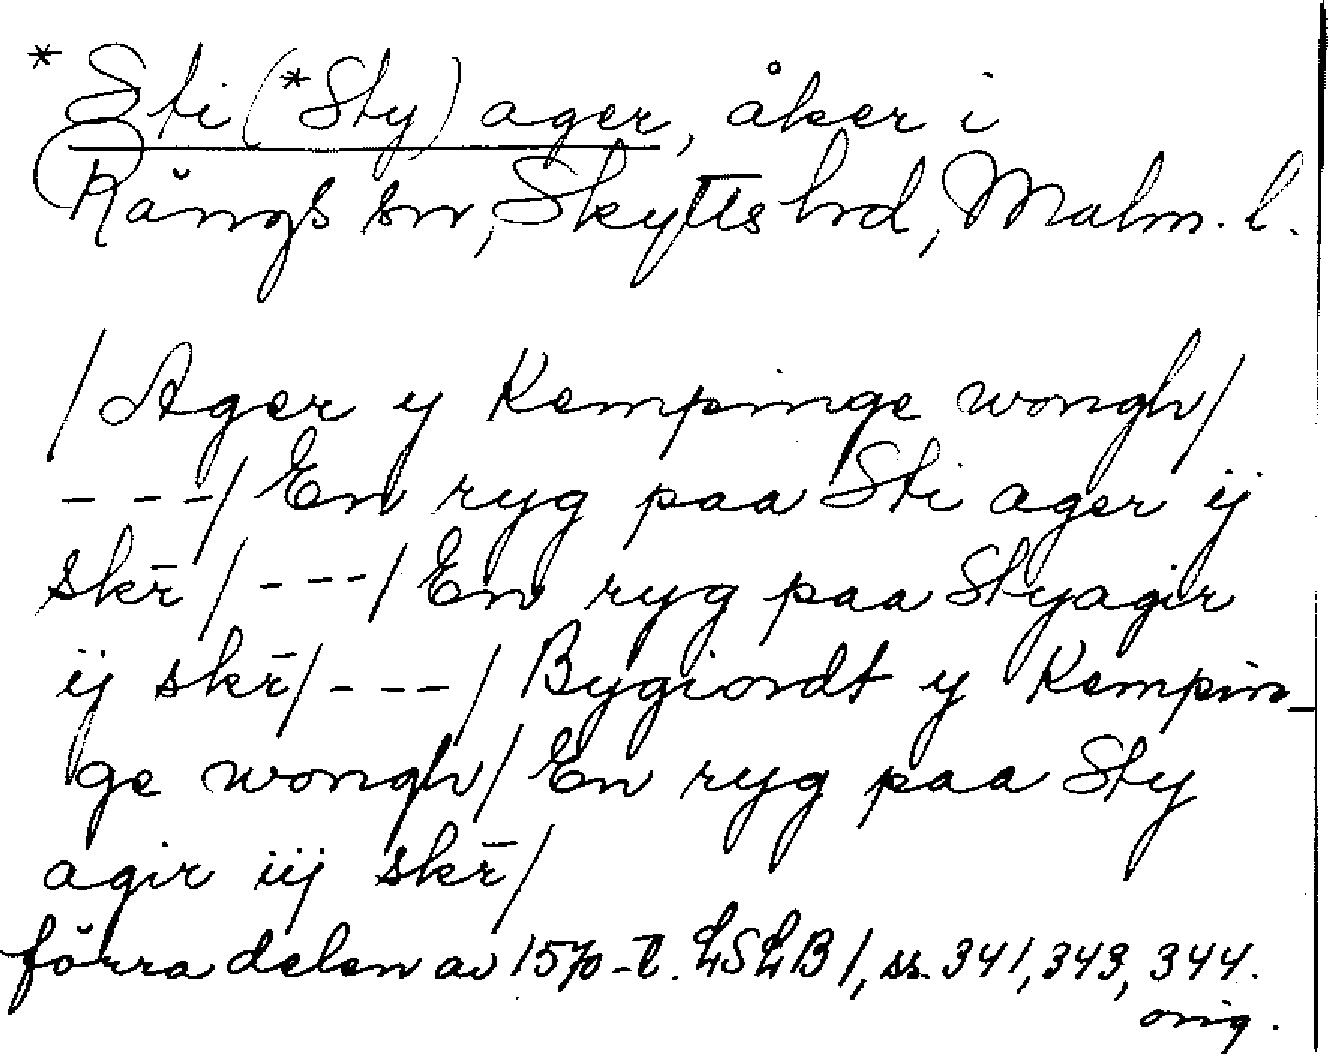 *Sti(*Sty)ager, åker i
Rängs sn, Skytts hrd, Malm. l.
/Ager y Kempinge wongh/
---/ En ryg paa Sti ager ij
skr̄/---/ En ryg paa Styagir
ij skr̄/---/ Bygiordt y Kempin-
ge wongh/ En ryg paa Sty
agir iij skr̄/
förra delen av 1570-t. LSLB 1, ss. 341, 343, 344.
orig.